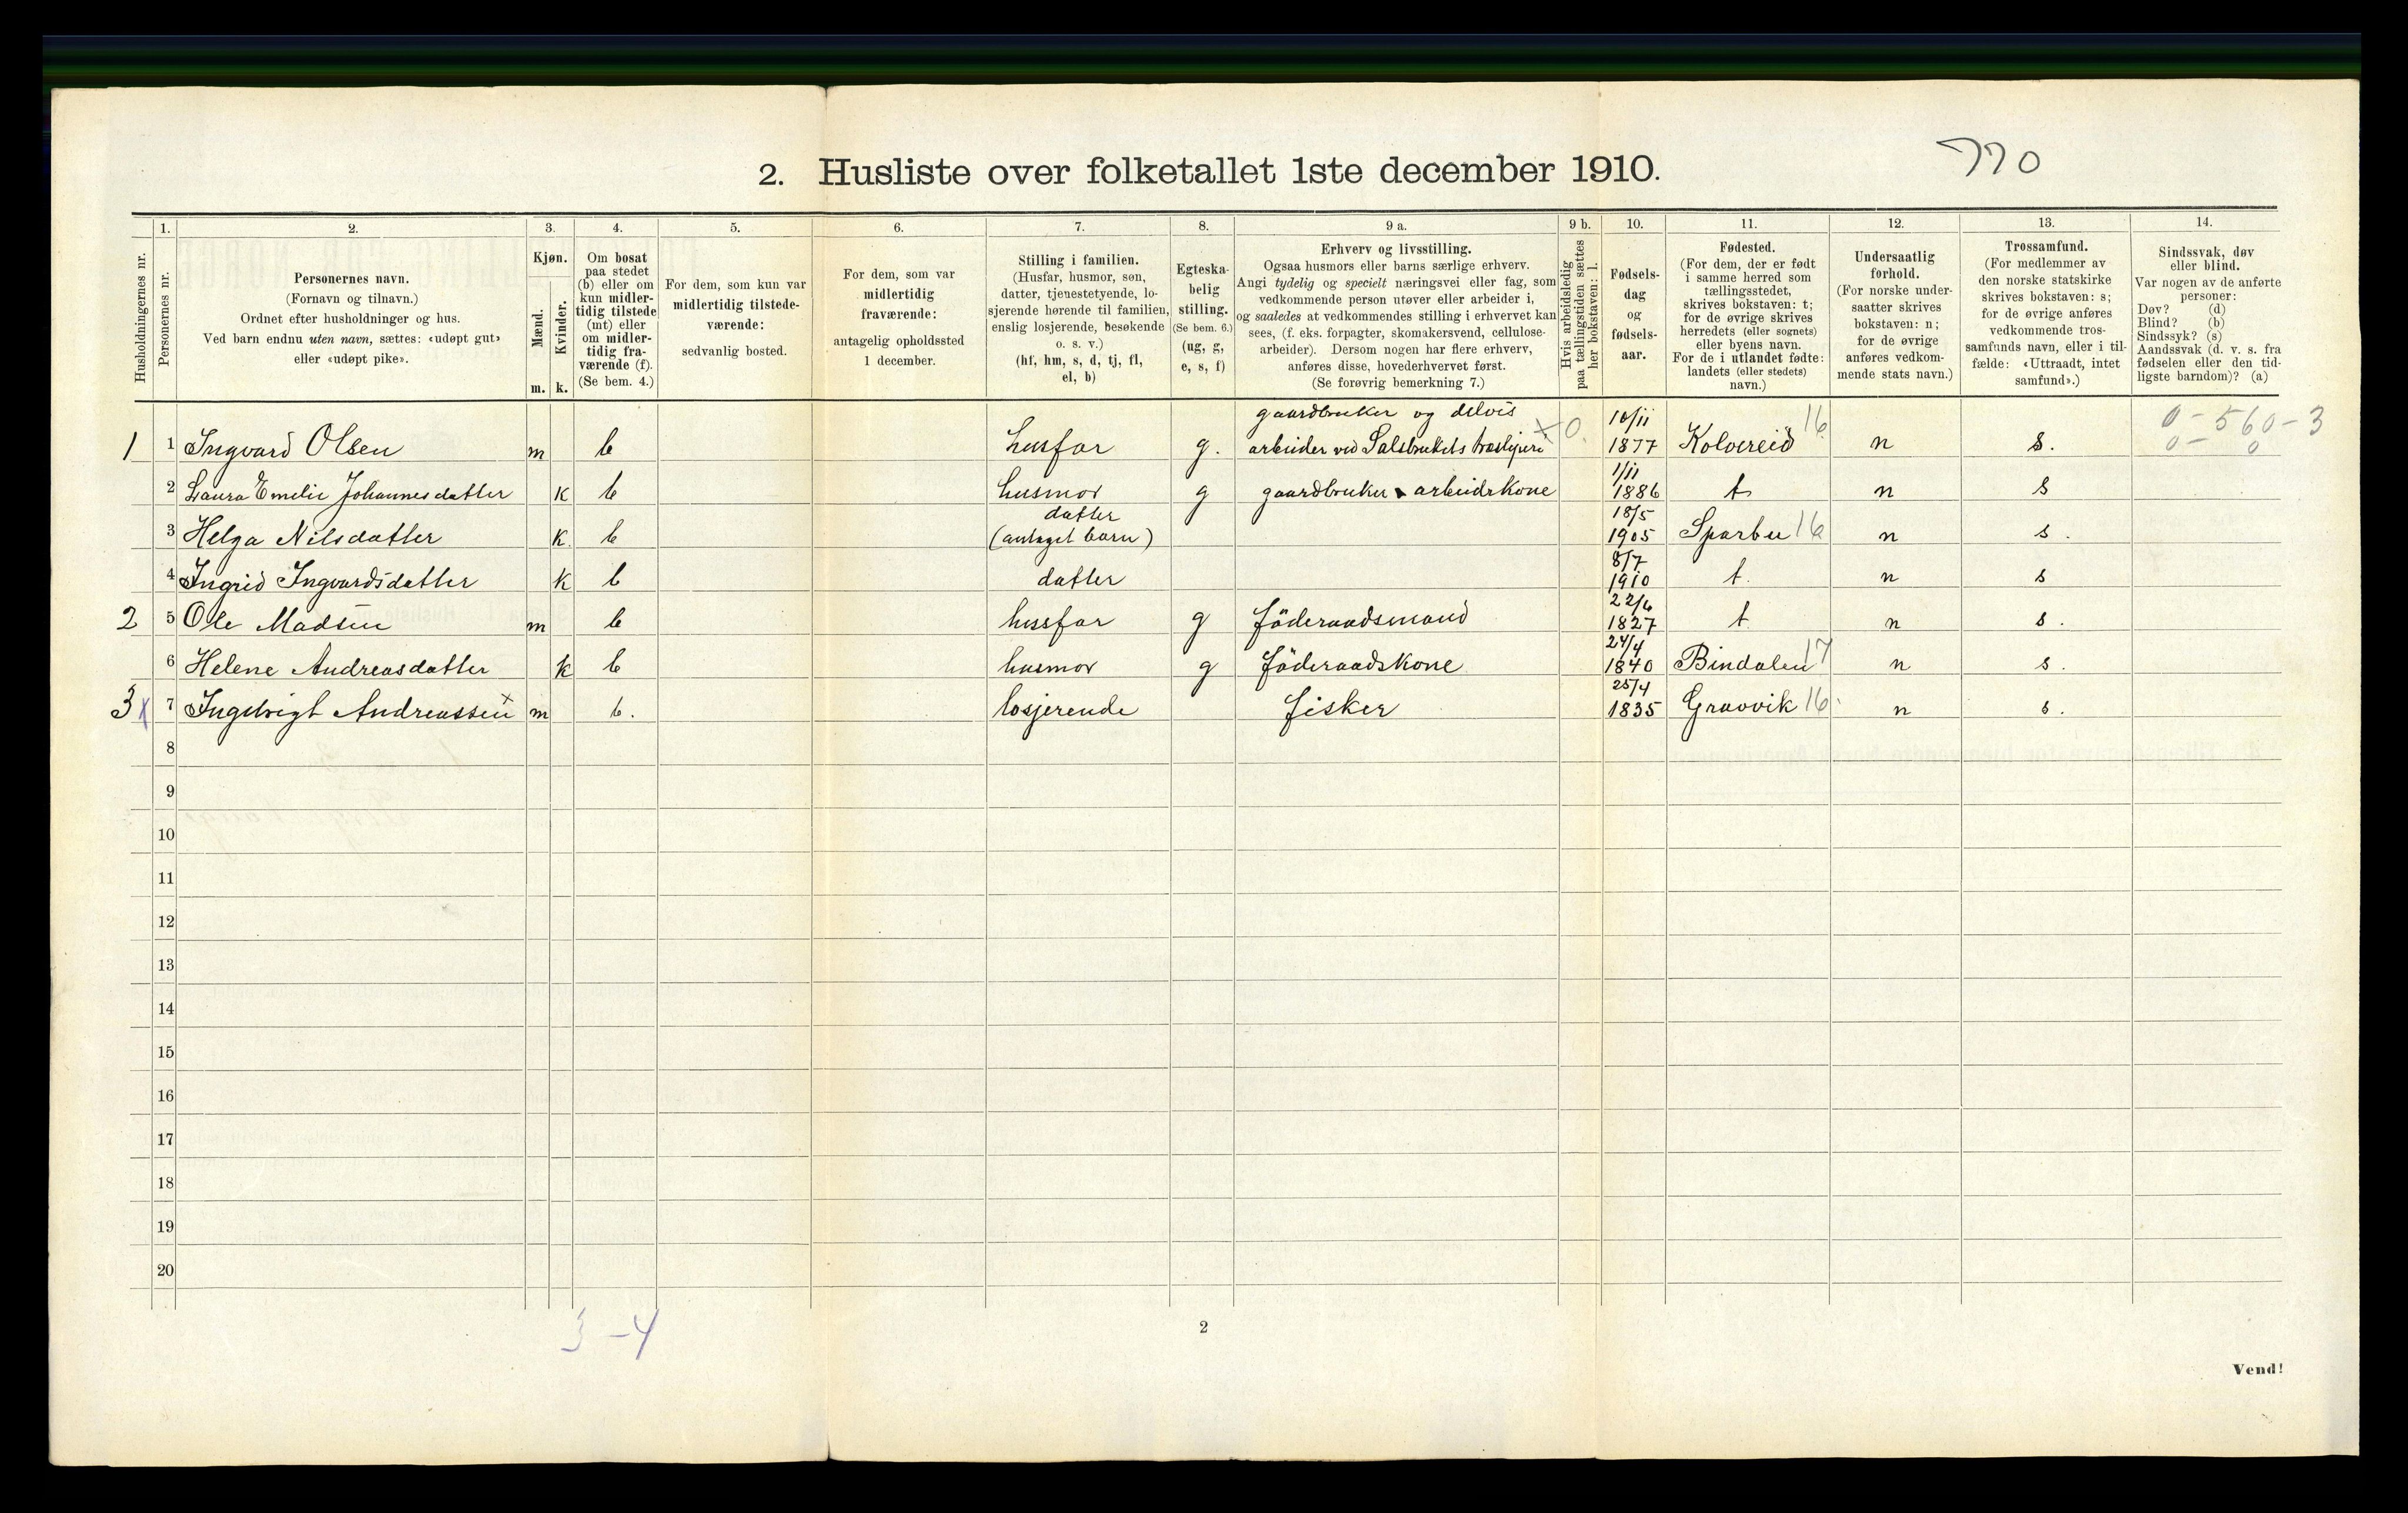 770
2. Husliste over folketallet 1ste december 1910.
Husholdningernes nr.
1.
Personernes nr.
2.
Personernes navn.
(Fornavn og tilnavn.)
Ordnet efter husholdninger og hus.
Ved barn endnu uten navn, sættes: «udøpt gut»
eller «udøpt pike».
3.
Kjøn.
Mænd.
m.
Kvinder.
k.
4.
Om bosat
paa stedet
(b) eller om
kun midler-
tidig tilstede
(mt) eller
om midler-
tidig fra-
værende (f).
(Se bem. 4.)
5.
For dem, som kun var
midlertidig tilstede-
værende:
sedvanlig bosted.
6.
For dem, som var
midlertidig
fraværende:
antagelig opholdssted
1 december.
7.
Stilling i familien.
(Husfar, husmor, søn,
datter, tjenestetyende, lo-
sjerende hørende til familien,
enslig losjerende, besøkende
o. s. v.)
(hf, hm, s, d, tj, fl,
el, b)
8.
Egteska-
belig
stilling.
(Se bem. 6.)
(ug, g,
e, s, f)
9 a.
Erhverv og livsstilling.
Ogsaa husmors eller barns særlige erhverv.
Angi tydelig og specielt næringsvei eller fag, som
vedkommende person utøver eller arbeider i,
og saaledes at vedkommendes stilling i erhvervet kan
sees, (f. eks. forpagter, skomakersvend, cellulose-
arbeider). Dersom nogen har flere erhverv,
anføres disse, hovederhvervet først.
(Se forøvrig bemerkning 7.)
9 b.
Hvis arbeidsledig
paa tællingstiden sættes
her bokstaven: l.
10.
Fødsels-
dag
og
fødsels-
aar.
11.
Fødested.
(For dem, der er født
i samme herred som
tællingsstedet,
skrives bokstaven: t;
for de øvrige skrives
herredets (eller sognets)
eller byens navn.
For de i utlandet fødte:
landets (eller stedets)
navn.)
12.
Undersaatlig
forhold.
(For norske under-
saatter skrives
bokstaven: n;
for de øvrige
anføres vedkom-
mende stats navn.)
13.
Trossamfund.
(For medlemmer av
den norske statskirke
skrives bokstaven: s;
for de øvrige anføres
vedkommende tros-
samfunds navn, eller i til-
fælde: «Uttraadt, intet
samfund».)
14.
Sindssvak, døv
eller blind.
Var nogen av de anførte
personer:
Døv? (d)
Blind? (b)
Sindssyk? (s)
Aandssvak (d. v. s. fra
fødselen eller den tid-
ligste barndom)? (a)
gaardbruker og delvis 10/11 16 0-560-3
1 1 Ingvard Olsen m b husfar g. arbeider ved Salsbrukets træsliperi x0. 1877 Kolvereid n s. 0- 0
1/11
2 Laura Emelie Johannesdatter k b husmor g gaardbruker arbeidrkone 1886 t n s
datter 18/5
3 Helga Nilsdatter k. b (antaget barn) 1905 Sparbu 16 n s.
8/7
4 Ingrid Ingvardsdatter k b datter 1910 t. n s
22/6
2 5 Ole Madsen m b husfar g föderaadsmand 1827 t n s.
24/4
6 Helene Andreasdatter k b husmor g föderaadskone 1840 Bindalen 17 n s.
25/4
3 x 7 Ingebrigt Andreassen x m b. losjerende fisker 1835 Gravvik 16. n s.
8
9
10
11
12
13
14
15
16
17
18
19
20
3 -4
2
Vend!